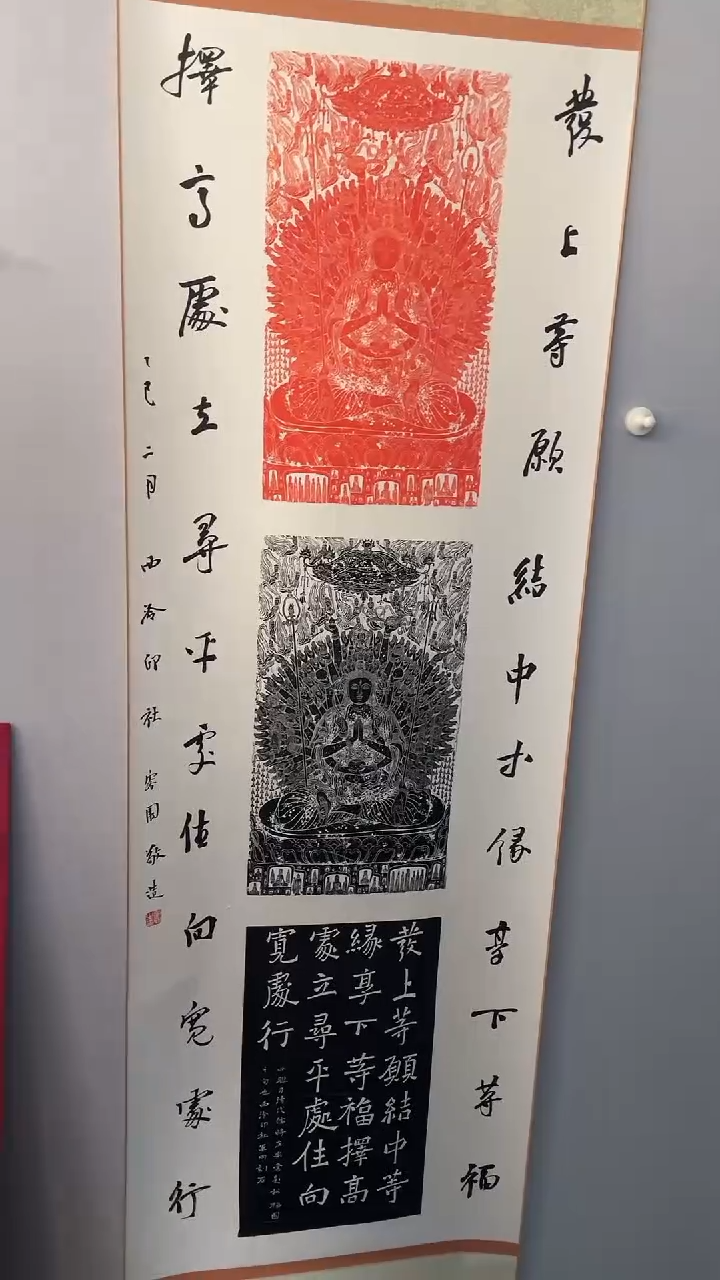 發上等願結中等緣享下等福
擇高處立尋平處住向寬處行
乙巳二月西泠印社 園敬造
發上等願結中等
緣享下等福擇高
處立尋平處住向
寬處行